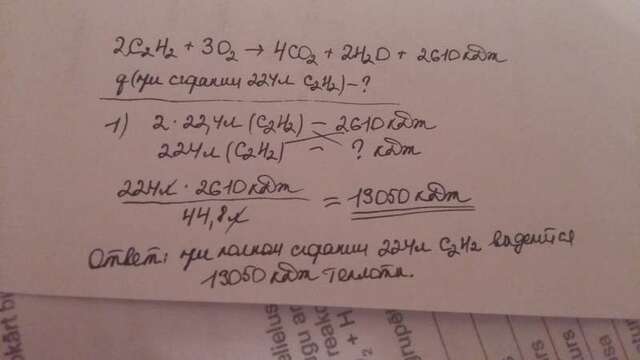 2C₂H₂ + 3O₂ → 4CO₂ + 2H₂O + 2610 кДж
q(при сгорании 224л C₂H₂) - ?
1) 2·22,4л (C₂H₂) - 2610 кДж
224л (C₂H₂) - ? кДж
224л · 2610 кДж / 44,8л = 13050 кДж
Ответ: при полном сгорании 224л C₂H₂ выделится
13050 кДж теплоты.
okārt
aijelus
reako
gu ar
₂ + H
grupē
urs